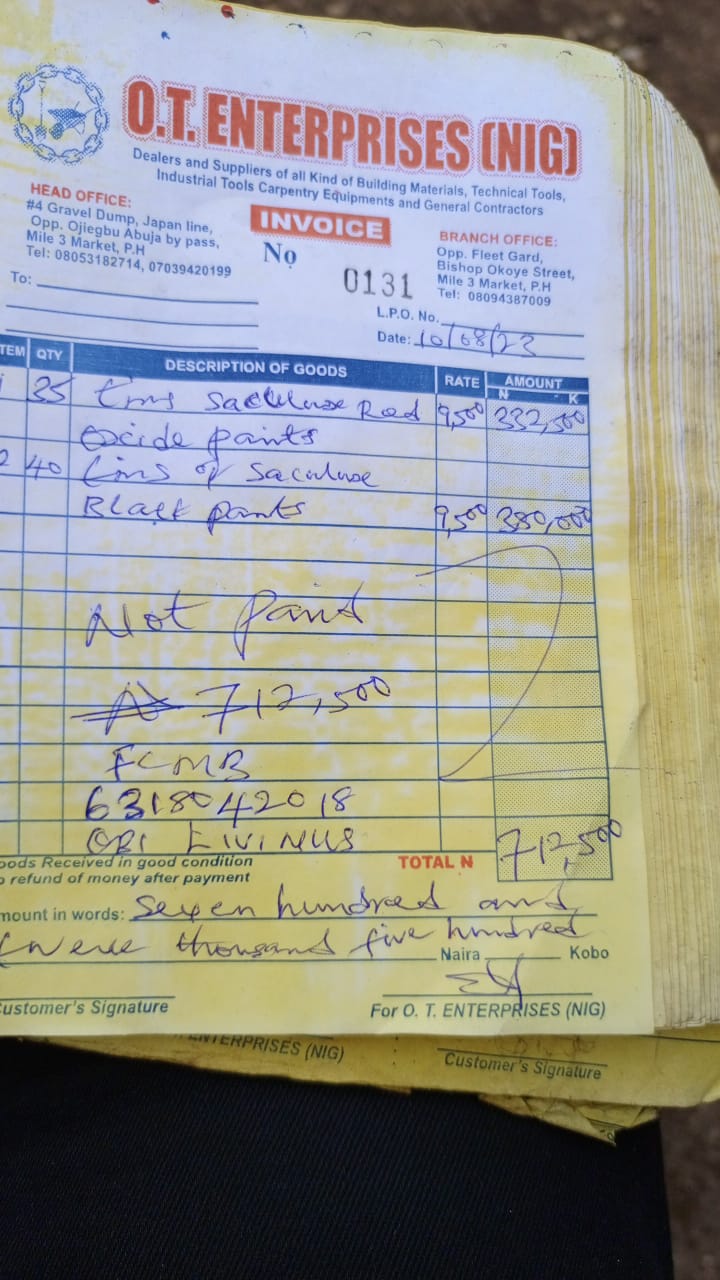 O.T. ENTERPRISES (NIG)
Dealers and Suppliers of all Kind of Building Materials, Technical Tools,
Industrial Tools Carpentry Equipments and General Contractors
HEAD OFFICE:
#4 Gravel Dump, Japan line,
Opp. Ojiegbu Abuja by pass,
Mile 3 Market, P.H
Tel: 08053182714, 07039420199
INVOICE
No 0131
BRANCH OFFICE:
Opp. Fleet Gard,
Bishop Okoye Street,
Mile 3 Market, P.H
Tel: 08094387009
To:
L.P.O. No.
Date: 10/08/23
TEM QTY DESCRIPTION OF GOODS RATE AMOUNT
N - K
1 35 Red 9,500 332,500
Oxide paints
2 40 of
paints 9,500 380,000
Not paid
N 712,500
FCMB
6318042018
OBI LIVINUS
oods Received in good condition
o refund of money after payment
TOTAL N 712,500
mount in words: Seven hundred and
thousand five hundred Naira Kobo
Customer's Signature
For O. T. ENTERPRISES (NIG)
ENTERPRISES (NIG)
Customer's Signature